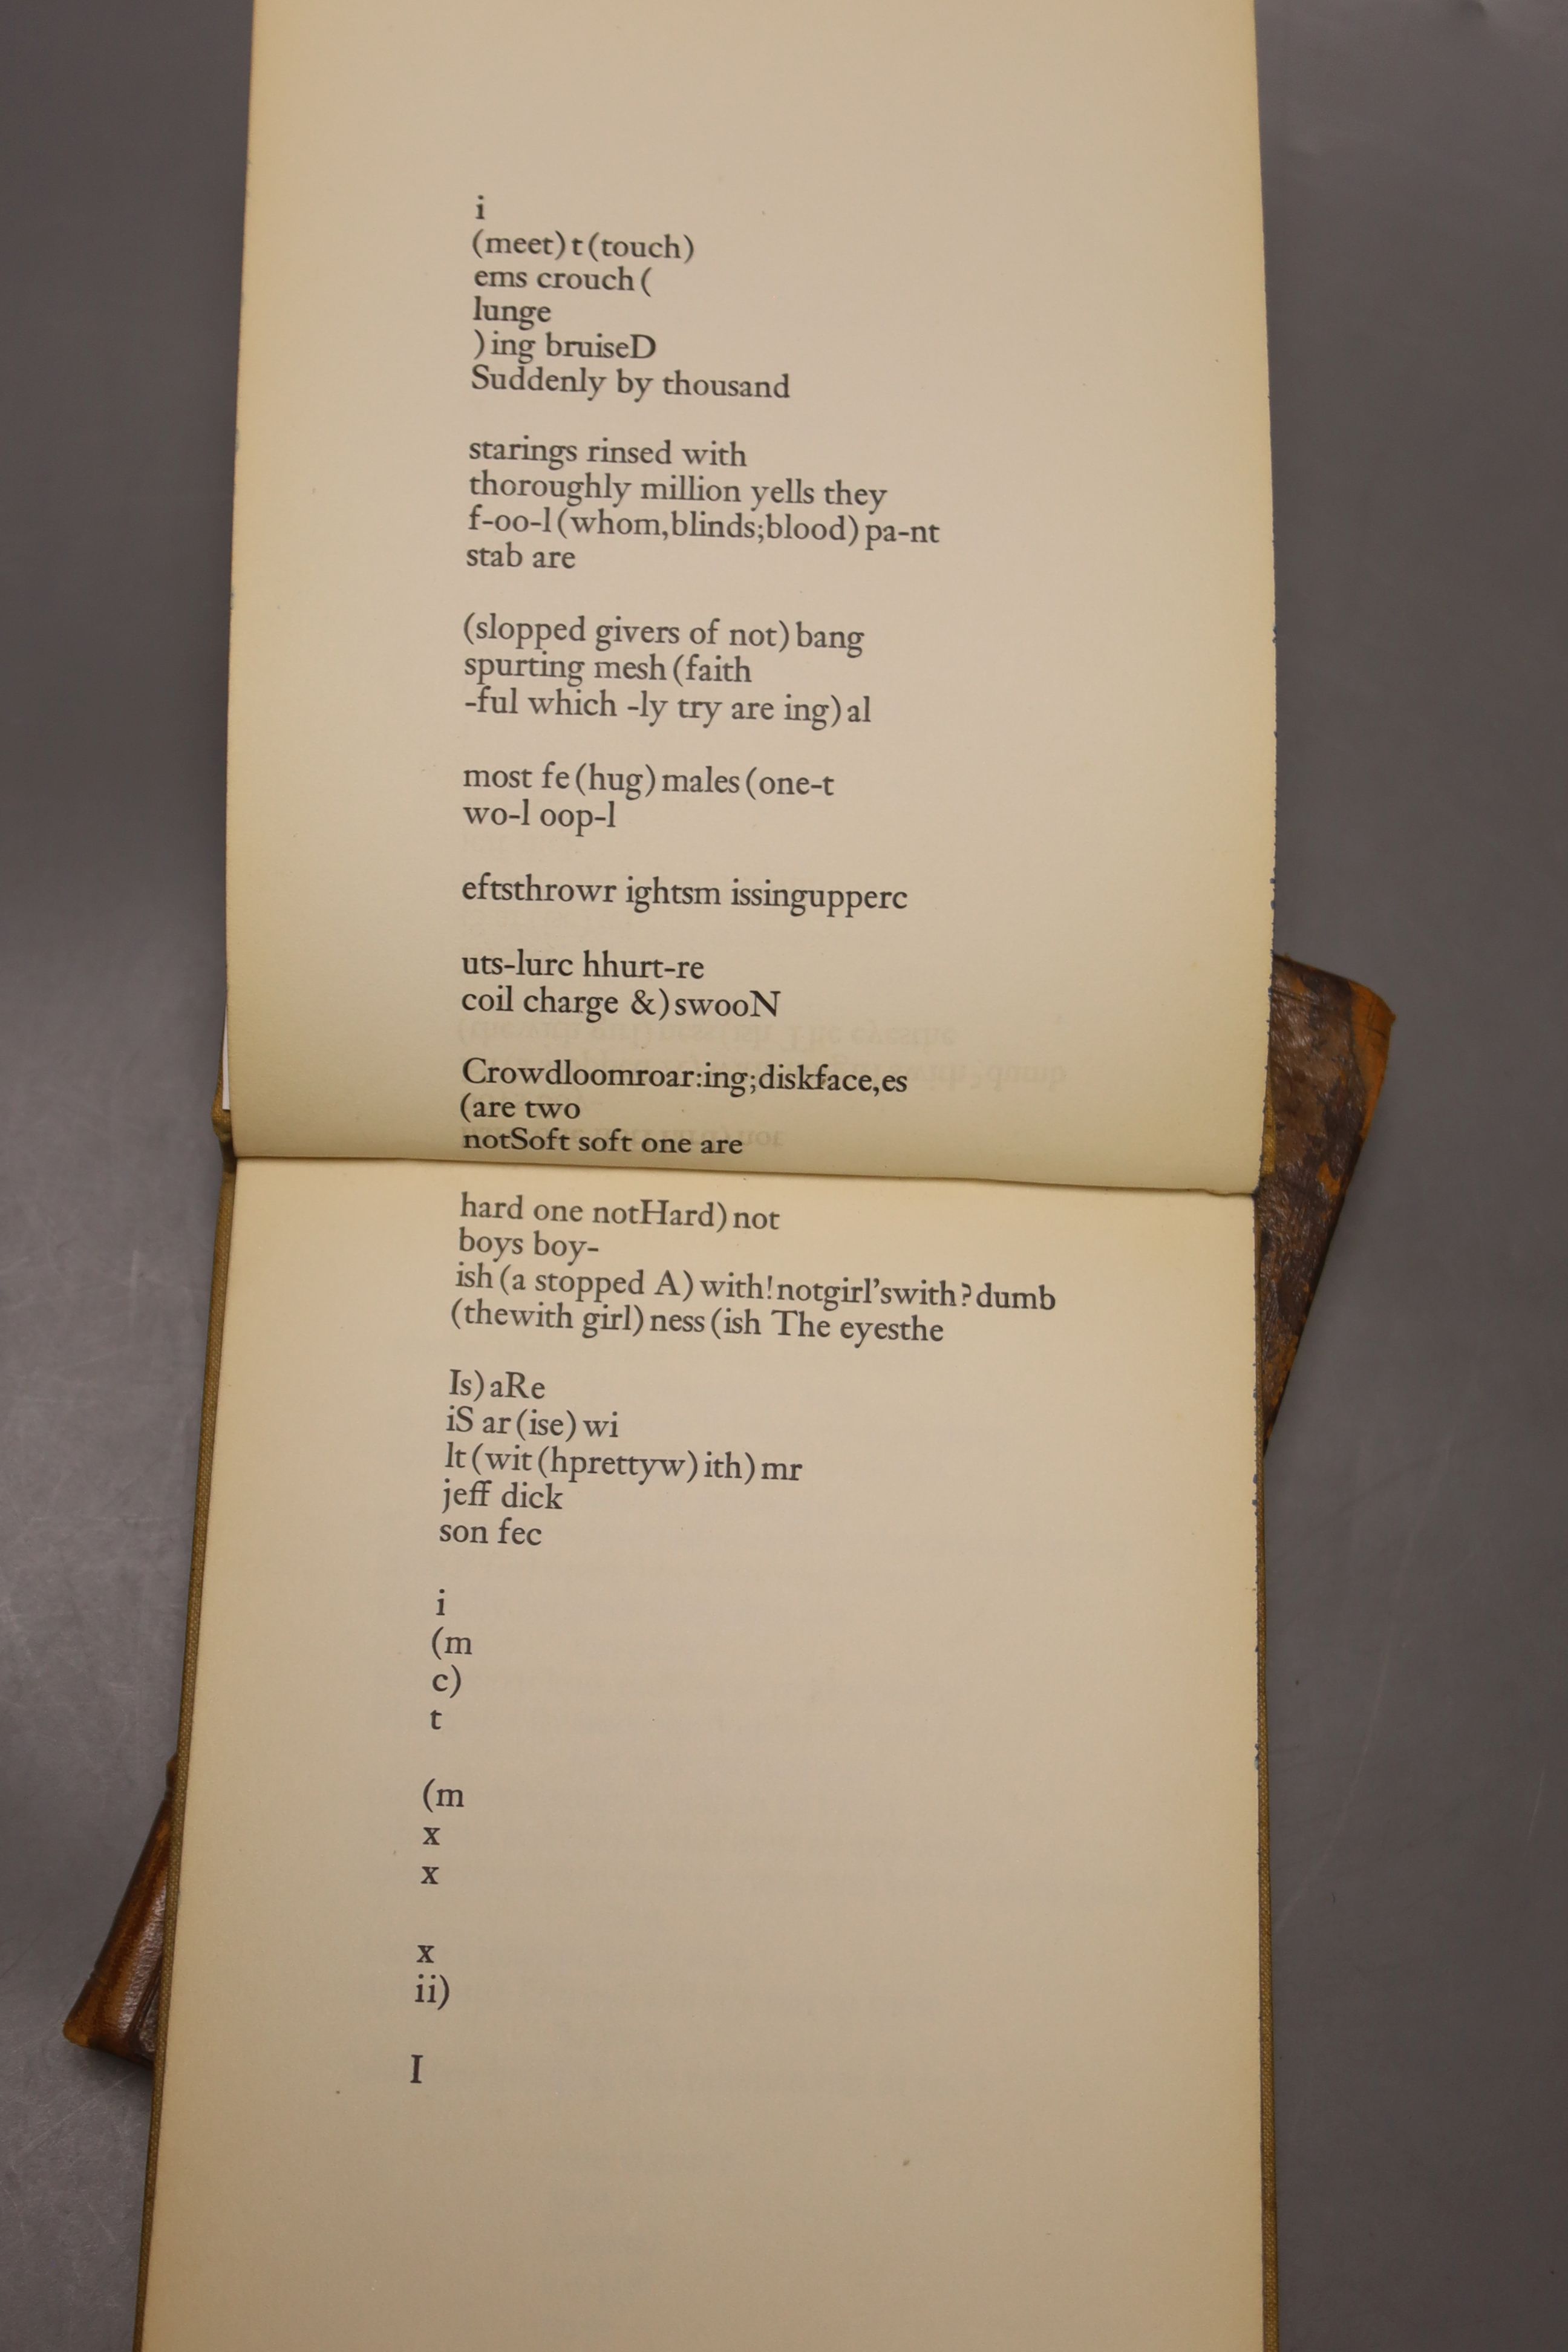 i
(meet)t(touch)
ems crouch(
lunge
)ing bruiseD
Suddenly by thousand

starings rinsed with
thoroughly million yells they
f-oo-l(whom,blinds;blood)pa-nt
stab are

(slopped givers of not)bang
spurting mesh(faith
-ful which -ly try are ing)al

most fe(hug)males(one-t
wo-l oop-l

eftsthrowr ightsm issingupperc

uts-lurc hhurt-re
coil charge &)swooN

Crowdloomroar:ing;diskface,es
(are two
notSoft soft one are

hard one notHard)not
boys boy-
ish(a stopped A)with!notgirl'swith?dumb
(thewith girl)ness(ish The eyesthe

Is)aRe
iS ar(ise)wi
lt(wit(hprettyw)ith)mr
jeff dick
son fec

i
(m
c)
t

(m
x
x

x
ii)

I